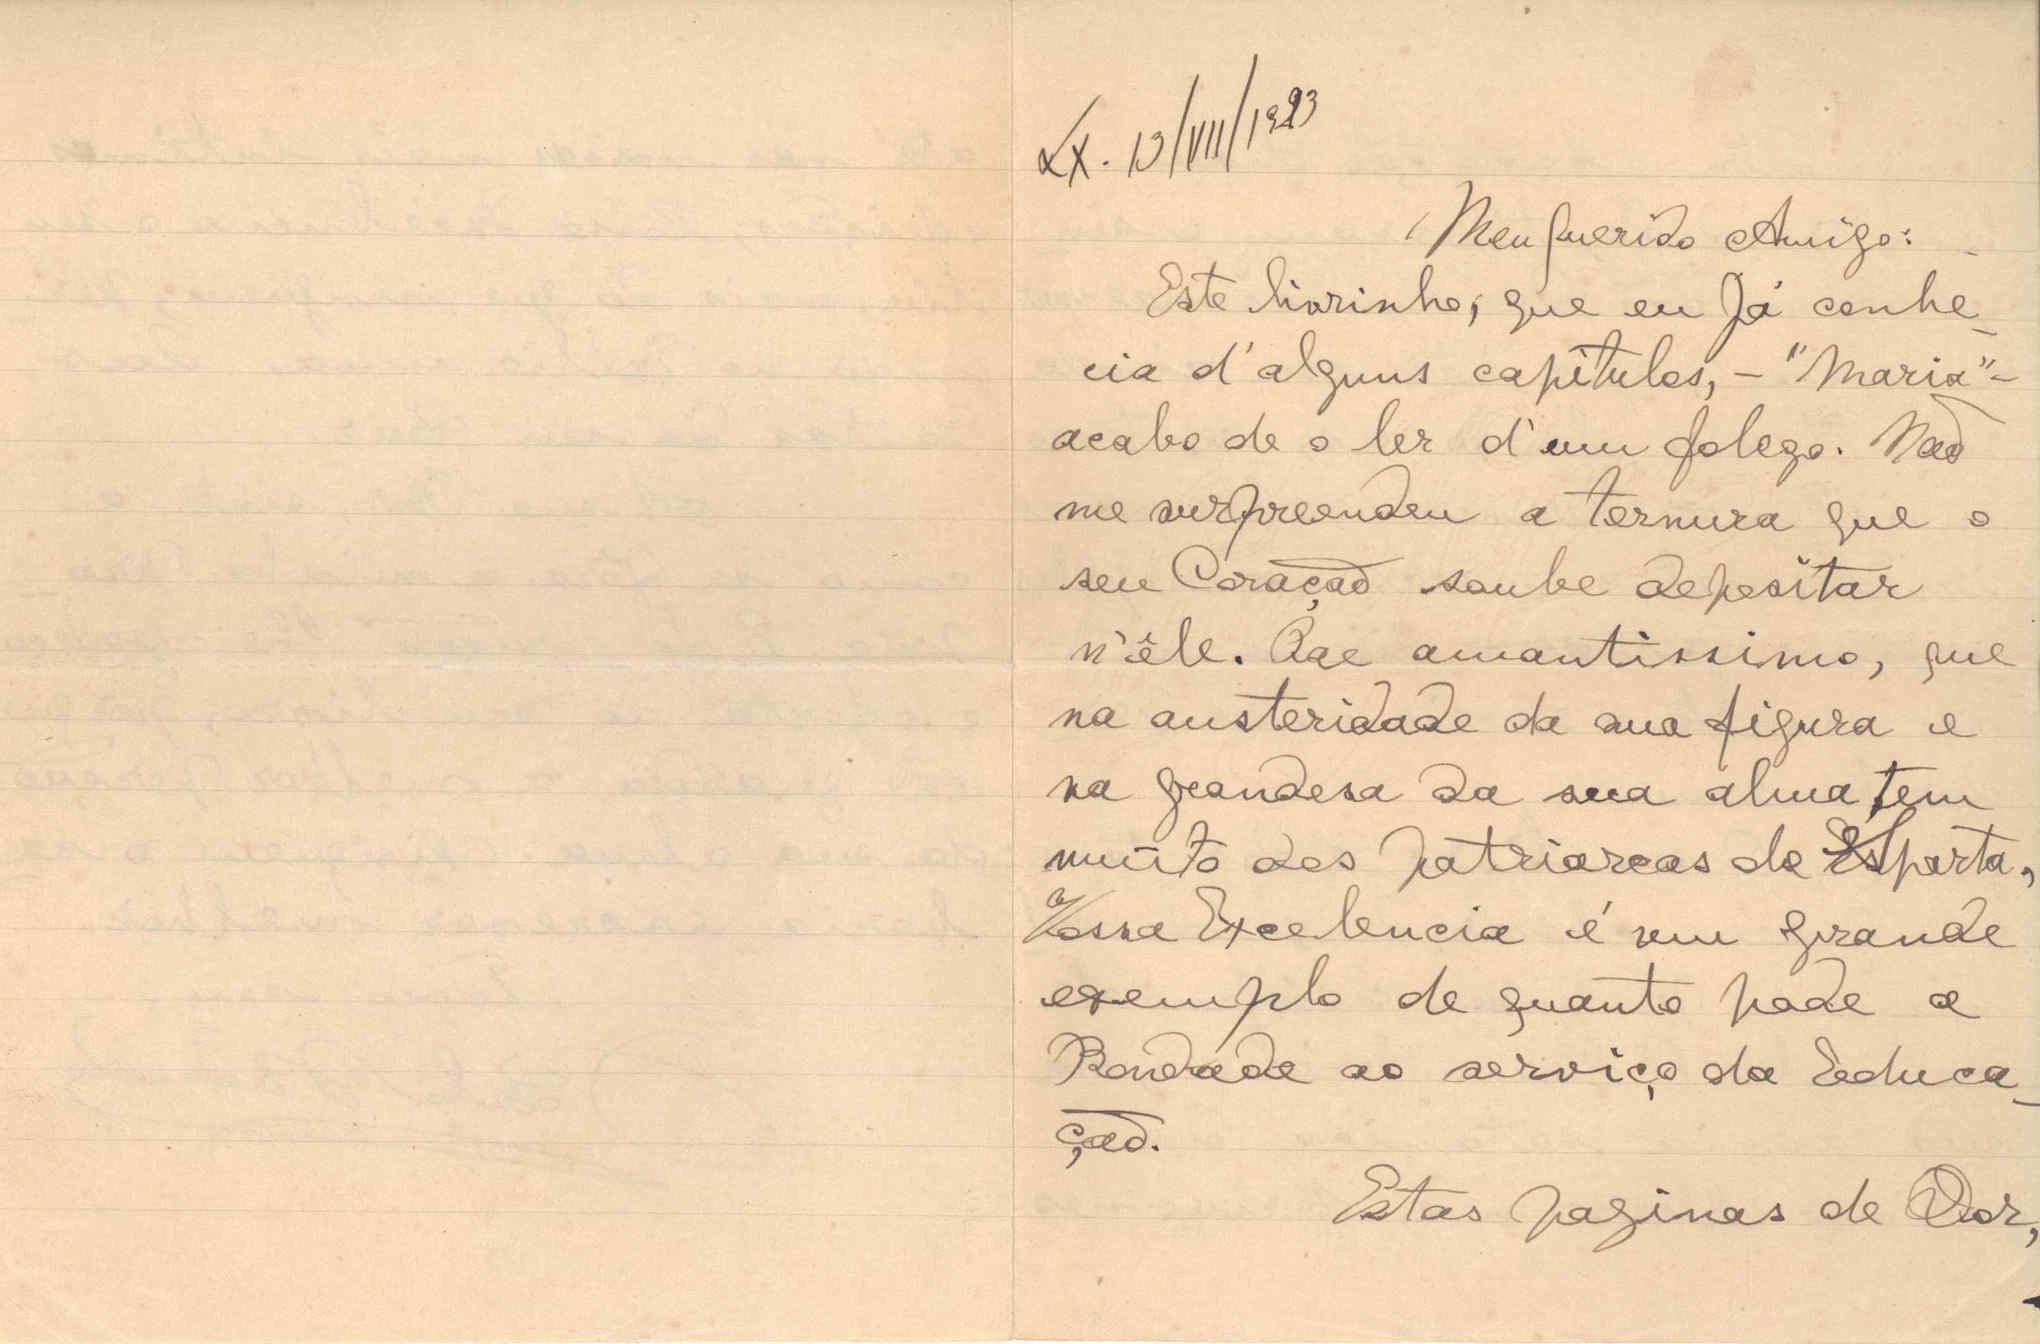 Lx. 13/VII/1923
Meu querido Amigo:
Este livrinho, que eu já conhe-
cia d'alguns capítulos, - "Maria" -
acabo de o ler d'um folego. Não
me surpreendeu a ternura que o
seu Coração soube depositar
n'êle. Pae amantissimo, que
na austeridade da sua figura e
na grandesa da sua alma tem
muito dos patriarcas de Esparta,
Vossa Excelencia é um grande
exemplo de quanto pode a
Bondade ao serviço da Educa-
ção.
Estas paginas de Dor,